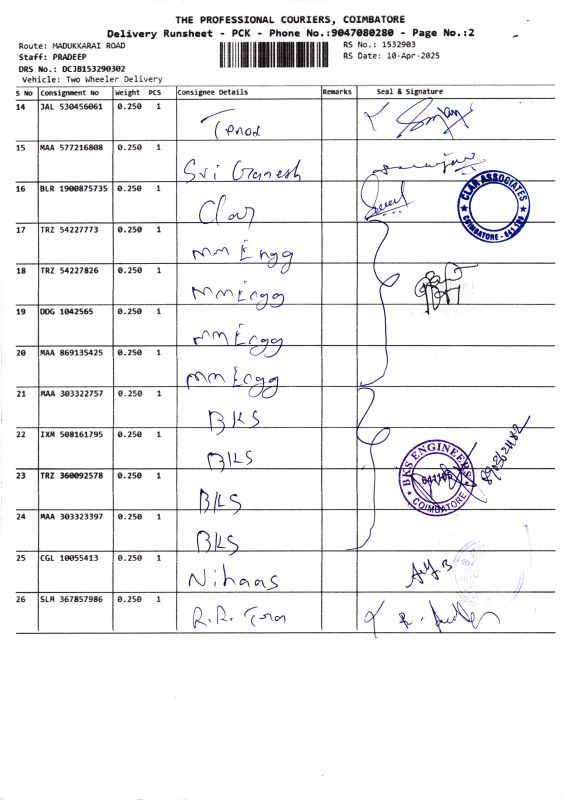 THE PROFESSIONAL COURIERS, COIMBATORE
Delivery Runsheet - PCK - Phone No.:9047080280 - Page No.:2
Route: MADUKKARAI ROAD
RS No.: 1532903
Staff: PRADEEP
RS Date: 10-Apr-2025
DRS No.: DCJB153290302
Vehicle: Two Wheeler Delivery
S No Consignment No Weight PCS Consignee Details Remarks Seal & Signature
14 JAL 530456061 0.250 1
15 MAA 577216808 0.250 1 Sri Ganesh
16 BLR 1900875735 0.250 1
CLAM ASSOCIATES
COIMBATORE
17 TRZ 54227773 0.250 1 mm Engg
18 TRZ 54227826 0.250 1 mm Engg
19 DDG 1042565 0.250 1 mm Engg
20 MAA 869135425 0.250 1 mm Engg
21 MAA 303322757 0.250 1 BKS
22 IXM 508161795 0.250 1 BKS
BKS ENGINEERS
COIMBATORE
23 TRZ 360092578 0.250 1 BKS
24 MAA 303323397 0.250 1 BKS
25 CGL 10055413 0.250 1 Nihaas
26 SLM 367857986 0.250 1 R.R.